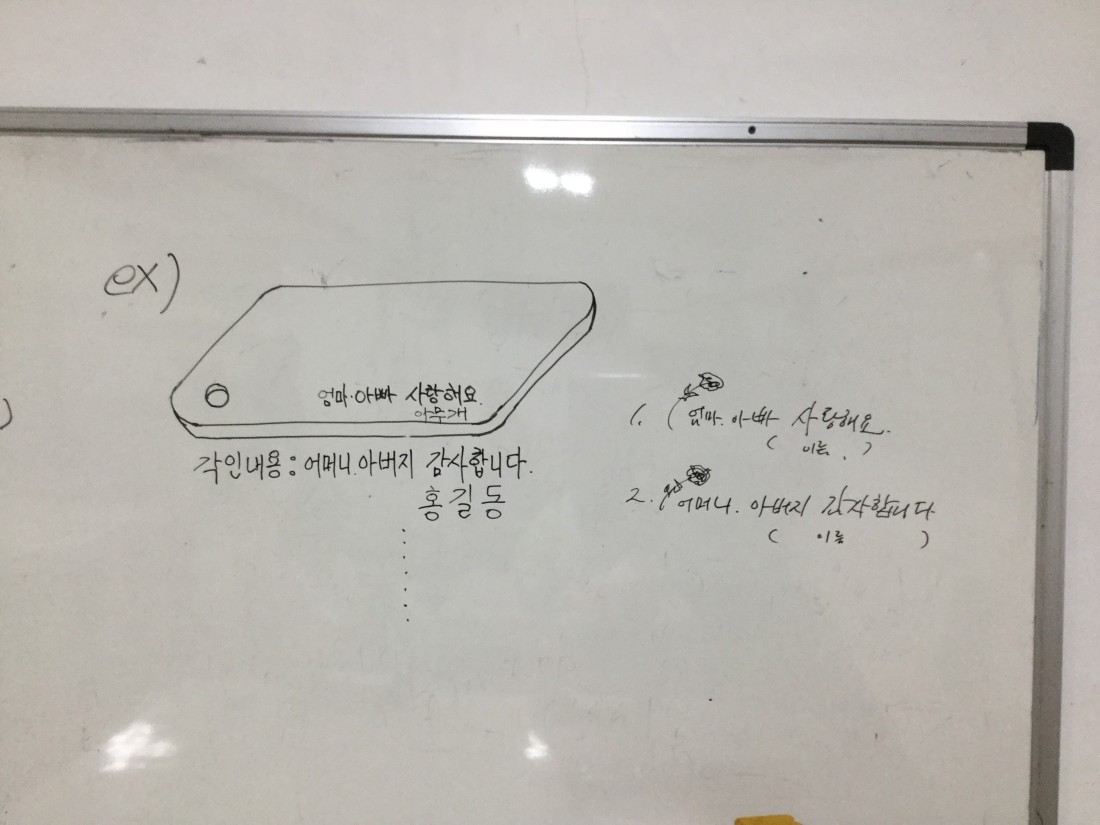 ex)
엄마·아빠 사랑해요.
아무개
각인내용: 어머니.아버지 감사합니다.
홍길동
1. (엄마. 아빠 사랑해요.
( 이름. )
2. 어머니. 아버지 감사합니다
( 이름 )